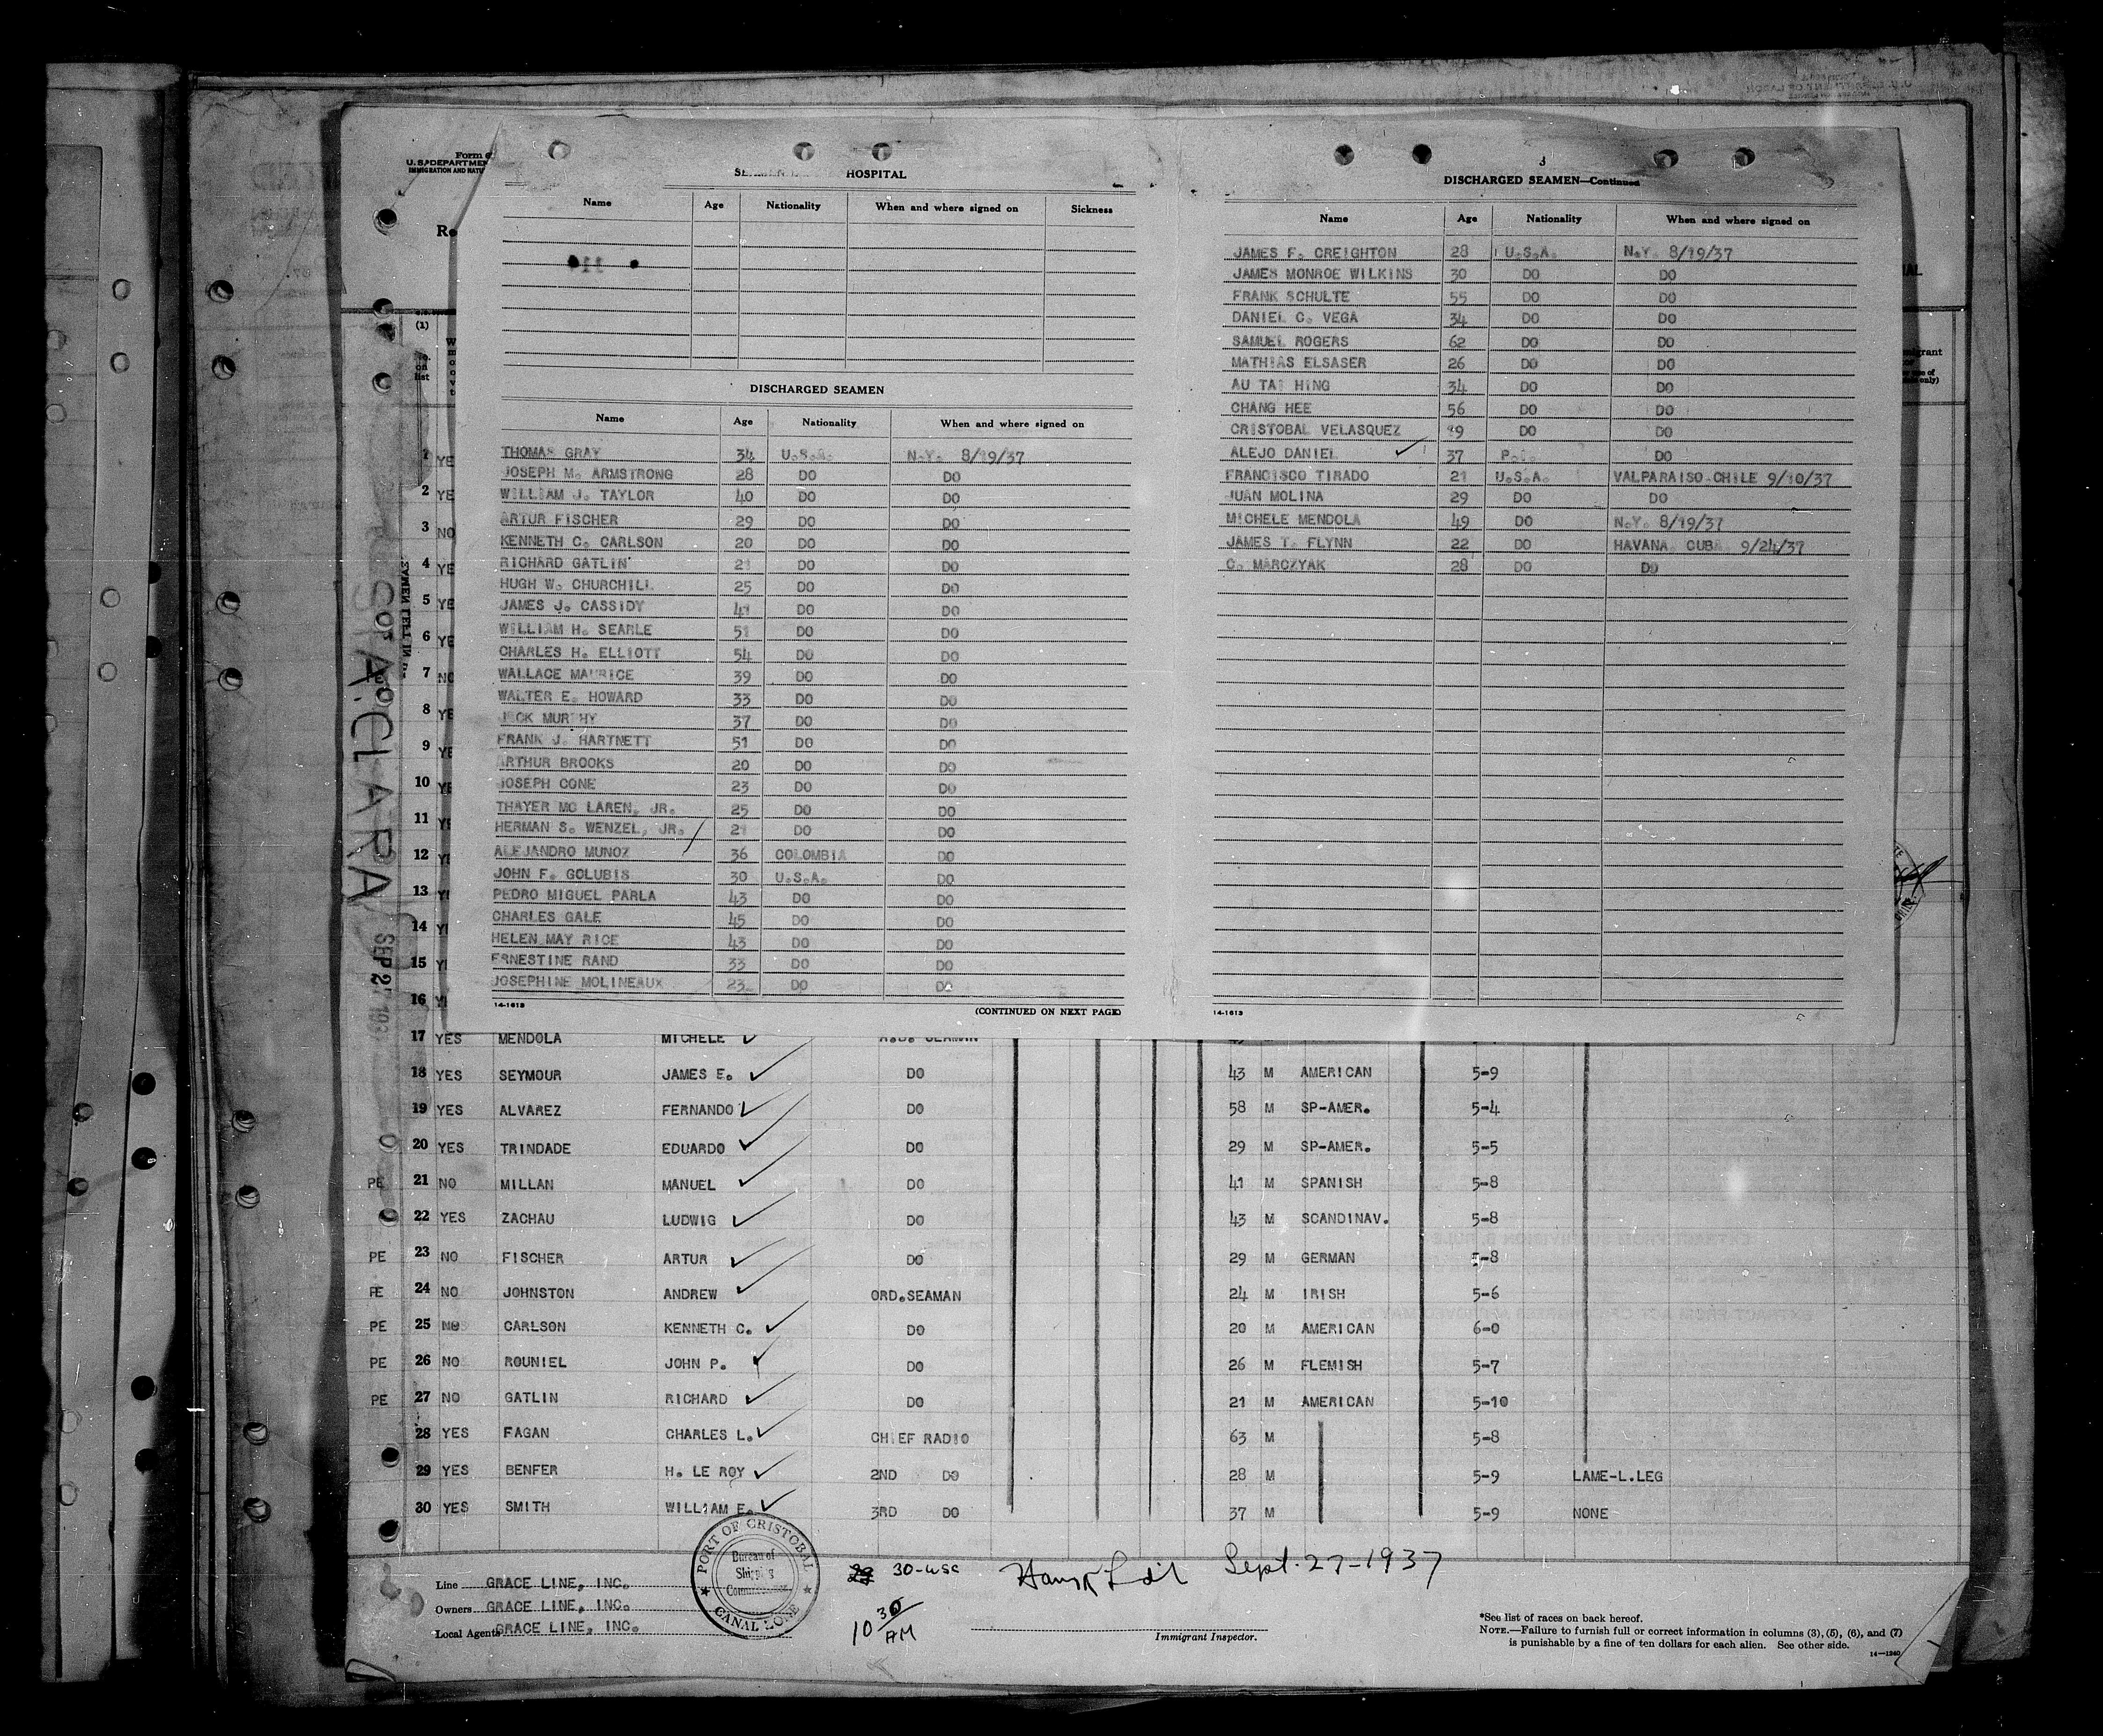 Form
U.S. DEPARTMENT
IMMIGRATION AND NATU
HOSPITAL
Name Age Nationality When and where signed on Sickness
DISCHARGED SEAMEN
Name Age Nationality When and where signed on
THOMAS GRAY 34 U.S.A. N.Y. 8/19/37
JOSEPH M. ARMSTRONG 28 DO DO
WILLIAM J. TAYLOR 40 DO DO
ARTUR FISCHER 29 DO DO
KENNETH C. CARLSON 20 DO DO
RICHARD GATLIN 21 DO DO
HUGH W. CHURCHILL 25 DO DO
JAMES J. CASSIDY 41 DO DO
WILLIAM H. SEARLE 51 DO DO
CHARLES H. ELLIOTT 54 DO DO
WALLACE MAURICE 39 DO DO
WALTER E. HOWARD 33 DO DO
JACK MURPHY 37 DO DO
FRANK J. HARTNETT 51 DO DO
ARTHUR BROOKS 20 DO DO
JOSEPH CONE 23 DO DO
THAYER MC LAREN, JR. 25 DO DO
HERMAN S. WENZEL, JR. 21 DO DO
ALEJANDRO MUNOZ 36 COLOMBIA DO
JOHN F. GOLUBIS 30 U.S.A. DO
PEDRO MIGUEL PARLA 43 DO DO
CHARLES GALE 45 DO DO
HELEN MAY RICE 43 DO DO
ERNESTINE RAND 33 DO DO
JOSEPHINE MOLINEAUX 23 DO DO
14-1613
(CONTINUED ON NEXT PAGE)
3
DISCHARGED SEAMEN—Continued
Name Age Nationality When and where signed on
JAMES F. CREIGHTON 28 U.S.A. N.Y. 8/19/37
JAMES MONROE WILKINS 30 DO DO
FRANK SCHULTE 55 DO DO
DANIEL C. VEGA 34 DO DO
SAMUEL ROGERS 62 DO DO
MATHIAS ELSASER 26 DO DO
AU TAI HING 34 DO DO
CHANG HEE 56 DO DO
CRISTOBAL VELASQUEZ 19 DO DO
ALEJO DANIEL 37 P.I. DO
FRANCISCO TIRADO 21 U.S.A. VALPARAISO-CHILE 9/10/37
JUAN MOLINA 29 DO DO
MICHELE MENDOLA 49 DO N.Y. 8/19/37
JAMES T. FLYNN 22 DO HAVANA CUBA 9/24/37
C. MARCZYAK 28 DO DO
14-1613
(1)
No. on list
1 YE
2 YE
3 NO
4 YE
5 YE
6 YE
7 NO
8 YE
9 YE
10 YE
11 YE
12 YE
13 YE
14 YE
15 YE
16 YE
A. CLARA
17 YES MENDOLA MICHELE A.B. SEAMAN
18 YES SEYMOUR JAMES E. DO 43 M AMERICAN 5-9
19 YES ALVAREZ FERNANDO DO 58 M SP-AMER. 5-4
20 YES TRINDADE EDUARDO DO 29 M SP-AMER. 5-5
PE 21 NO MILLAN MANUEL DO 41 M SPANISH 5-8
22 YES ZACHAU LUDWIG DO 43 M SCANDINAV. 5-8
PE 23 NO FISCHER ARTUR DO 29 M GERMAN 5-8
PE 24 NO JOHNSTON ANDREW ORD.SEAMAN 24 M IRISH 5-6
PE 25 NO CARLSON KENNETH C. DO 20 M AMERICAN 6-0
PE 26 NO ROUNIEL JOHN P. DO 26 M FLEMISH 5-7
PE 27 NO GATLIN RICHARD DO 21 M AMERICAN 5-10
28 YES FAGAN CHARLES L. CHIEF RADIO 63 M 5-8
29 YES BENFER H. LE ROY 2ND DO 28 M 5-9 LAME-L.LEG
30 YES SMITH WILLIAM E. 3RD DO 37 M 5-9 NONE
Line GRACE LINE, INC.
Owners GRACE LINE, INC.
Local Agents GRACE LINE, INC.
PORT OF CRISTOBAL
Bureau of
Shipping
CANAL ZONE
30-USC
10 30 AM
Sept. 27-1937
Immigrant Inspector.
*See list of races on back hereof.
NOTE.—Failure to furnish full or correct information in columns (3), (5), (6), and (7)
is punishable by a fine of ten dollars for each alien. See other side.
14-1240